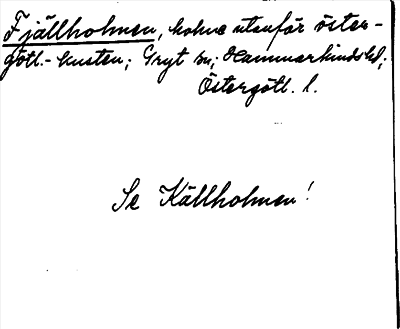 Fjällholmen, holme utanför öster-
götl.-kusten; Gryt sn; Hammarkinds hd;
Östergötl. l.
Se Källholmen!